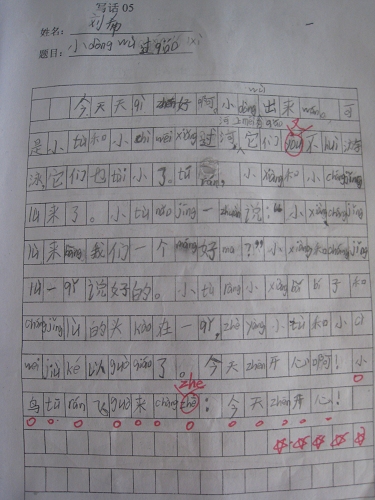 写话05
姓名：刘希
题目：小dòng wù 过 qiáo
今天天qì 好 啊 小dòng wù 出来 wán。可
是小tù和小cì wei xiǎng过河，它们 yòu 不 huì
泳它们也tài小了。tū rán，小xiàng和小cháng jǐng
lù来了。小tù nǎo jīng一zhuàn说：“小xiàng cháng jǐng
lù来 bāng 我们一个 máng 好 ma？”小xiàng和cháng jǐng
lù一qǐ说好的。小tù ràng小xiàng bǎ bí子和
cháng jǐng lù的头 kào在一qǐ，zhè yàng小tù和小cì
wei jiù kě以guò qiáo了。今天zhēn开心啊！小
鸟tū rán飞guò来chàng zhe：今天zhēn开心！